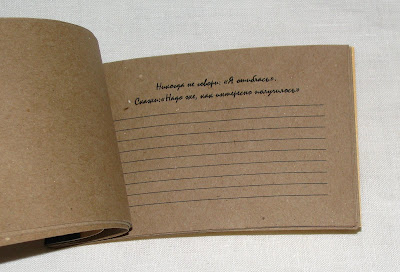 Никогда не говори: «Я ошиблась».
Скажи:«Надо же, как интересно получилось»